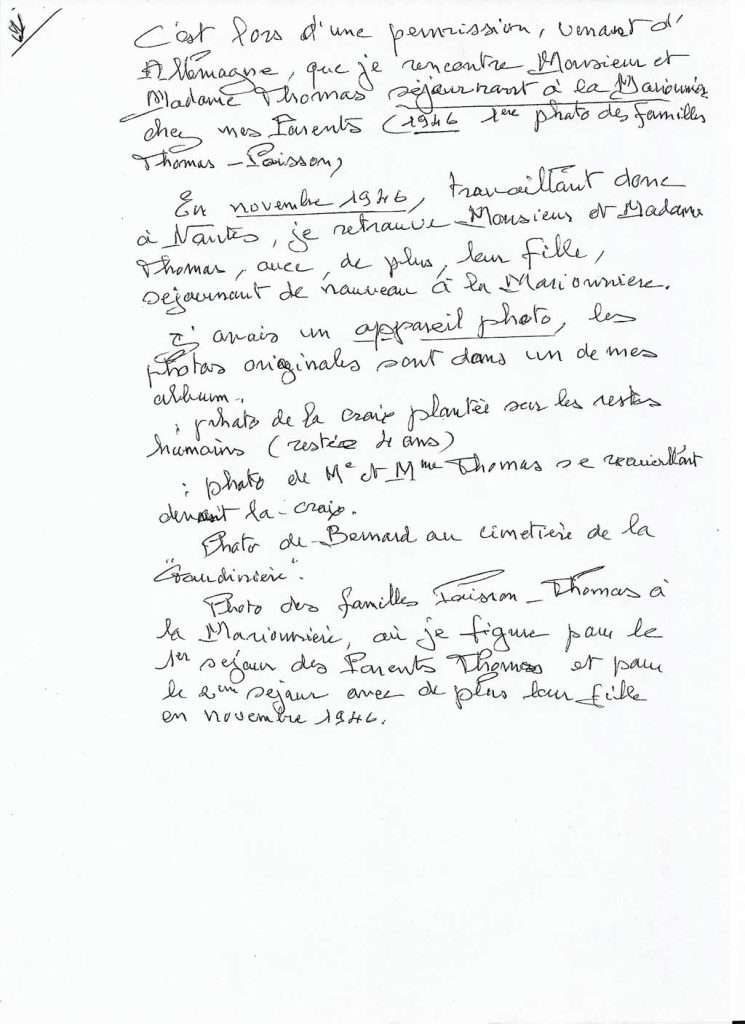 C'est lors d'une permission, venant d'
Allemagne, que je rencontre Monsieur et
Madame Thomas séjournant à la Marionnière
chez mes Parents (1946 1ère photo des familles
Thomas - Poisson)
En novembre 1946, travaillant donc
à Nantes, je retrouve Monsieur et Madame
Thomas, avec, de plus, leur fille,
séjournant de nouveau à la Marionnière.
J'avais un appareil photo, les
photos originales sont dans un de mes
album.
: photo de la croix plantée sur les restes
humains (restée 4 ans)
: photo de Mr et Mme Thomas se recueillant
devant la croix.
Photo de Bernard au cimetière de la
"Gaudinière".
Photo des familles Poisson - Thomas à
la Marionnière, où je figure pour le
1er séjour des Parents Thomas et pour
le 2ème séjour avec de plus leur fille
en novembre 1946.